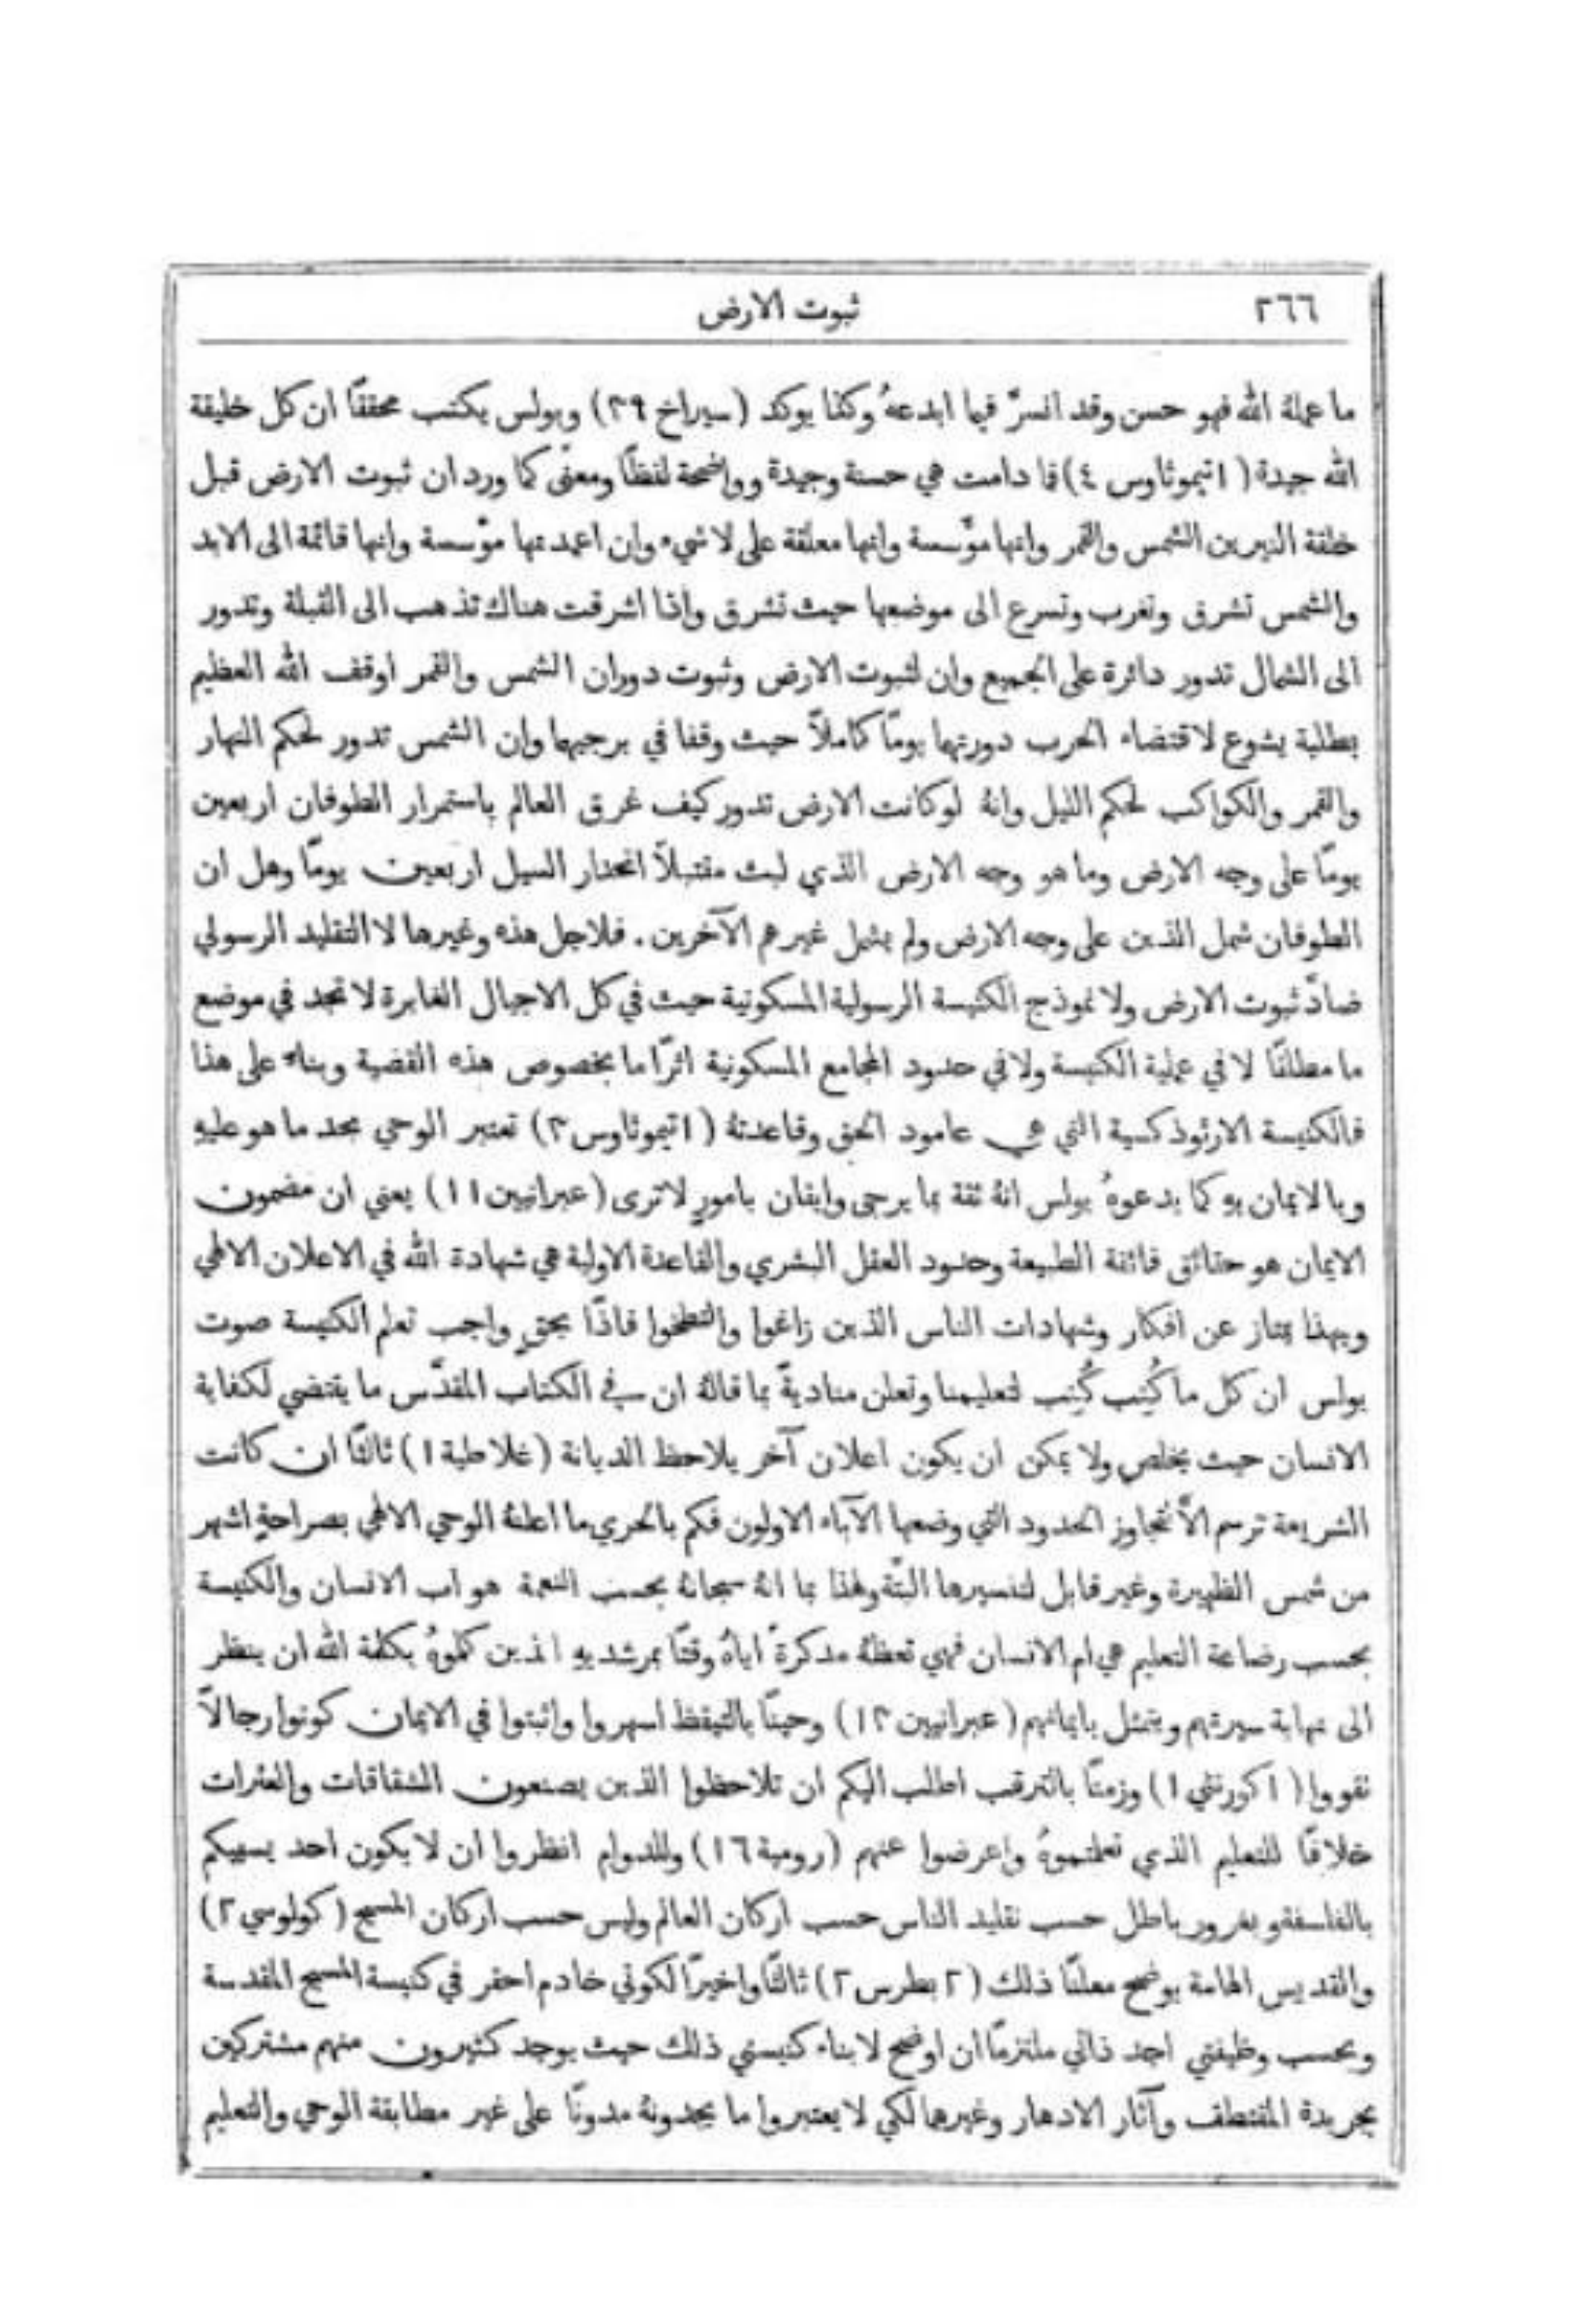 ٢٦٦ ثبوت الارض
ما عملهُ الله فهو حسن وقد انسرّ فيما ابدعهُ وكذا يوكد (سيراخ ٣٩) وبولس يكتب محققًا ان كل خليقة
الله جيدة (١ تيموثاوس ٤) فما دامت هي حسنة وجيدة وواضحة لفظًا ومعنًى كما ورد ان ثبوت الارض قبل
خلقة النيرين الشمس والقمر وانها مؤَّسسة وانها معلقة على لا شيء وان اعمدتها موّسسة وانها قائمة الى الابد
والشمس تشرق وتغرب وتسرع الى موضعها حيث تشرق واذا اشرقت هناك تذهب الى القبلة وتدور
الى الشمال تدور دائرة على الجميع وان لثبوت الارض وثبوت دوران الشمس والقمر اوقف الله العظيم
بطلبة يشوع لاقتضاء الحرب دورتهما يومًا كاملاً حيث وقفا في برجيهما وان الشمس تدور لحكم النهار
والقمر والكواكب لحكم الليل وانهُ لو كانت الارض تدور كيف غرق العالم باستمرار الطوفان اربعين
يومًا على وجه الارض وما هو وجه الارض الذي لبث مقتبلاً انحدار السيل اربعين يومًا وهل ان
الطوفان شمل الذين على وجه الارض ولم يشمل غيرهم الآخرين . فلاجل هذه وغيرها لا التقليد الرسولي
ضادّ ثبوت الارض ولا نموذج الكنيسة الرسولية المسكونية حيث في كل الاجيال الغابرة لا تجد في موضع
ما مطلقًا لا في عملية الكنيسة ولا في حدود المجامع المسكونية اثرًا ما بخصوص هذه القضية وبناء على هذا
فالكنيسة الارثوذكسية التي هي عامود الحق وقاعدتهُ (١ تيموثاوس ٣) تعتبر الوحي بحد ما هو عليهِ
وبالايمان بهِ كما يدعوهُ بولس انهُ ثقة بما يرجى وايقان بامورٍ لا ترى (عبرانيين ١١) يعني ان مضمون
الايمان هو حقائق فائقة الطبيعة وحدود العقل البشري والقاعدة الاولية هي شهادة الله في الاعلان الالهي
وبهذا يمتاز عن افكار وشهادات الناس الذين زاغوا والتطخوا فاذًا بحقٍ واجب تعلم الكنيسة صوت
بولس ان كل ما كُتِب كُتِب لتعليمنا وتعلن مناديةً بما قالهُ ان في الكتاب المقدَّس ما يقتضي لكفاية
الانسان حيث يخلص ولا يمكن ان يكون اعلان آخر يلاحظ الديانة (غلاطية ١) ثالثًا ان كانت
الشريعة ترسم الاَّ نتجاوز الحدود التي وضعها الآباء الاولون فكم بالحري ما اعلنهُ الوحي الالهي بصراحةٍ اشهر
من شمس الظهيرة وغير قابل لتفسيرها البتَّة ولهذا بما انهُ سبحانهُ بحسب النعمة هو اب الانسان والكنيسة
بحسب رضاعة التعليم هي ام الانسان فهي تعظهُ مذكرةً اياهُ وقتًا بمرشديهِ الذين كلموهُ بكلمة الله ان ينظر
الى نهاية سيرتهم ويتمثل بايمانهم (عبرانيين ١٣) وحينًا بالتيقظ اسهروا واثبتوا في الايمان كونوا رجالاً
تقووا (١ كورنثي ١) وزمنًا بالترقب اطلب اليكم ان تلاحظوا الذين يصنعون الشقاقات والعثرات
خلافًا للتعليم الذي تعلمتموهُ واعرضوا عنهم (رومية ١٦) وللدوام انظروا ان لا يكون احد يسبيكم
بالفلسفة وبغرور باطل حسب تقليد الناس حسب اركان العالم وليس حسب اركان المسيح (كولوسي ٢)
والقديس الهامة يوضح معلنًا ذلك (٢ بطرس ٢) ثالثًا واخيرًا لكوني خادم احقر في كنيسة المسيح المقدسة
وبحسب وظيفتي اجد ذاتي ملتزمًا ان اوضح لابناء كنيستي ذلك حيث يوجد كثيرون منهم مشتركين
بجريدة المقتطف وآثار الادهار وغيرها لكي لا يعتبروا ما يجدونهُ مدونًا على غير مطابقة الوحي والتعليم